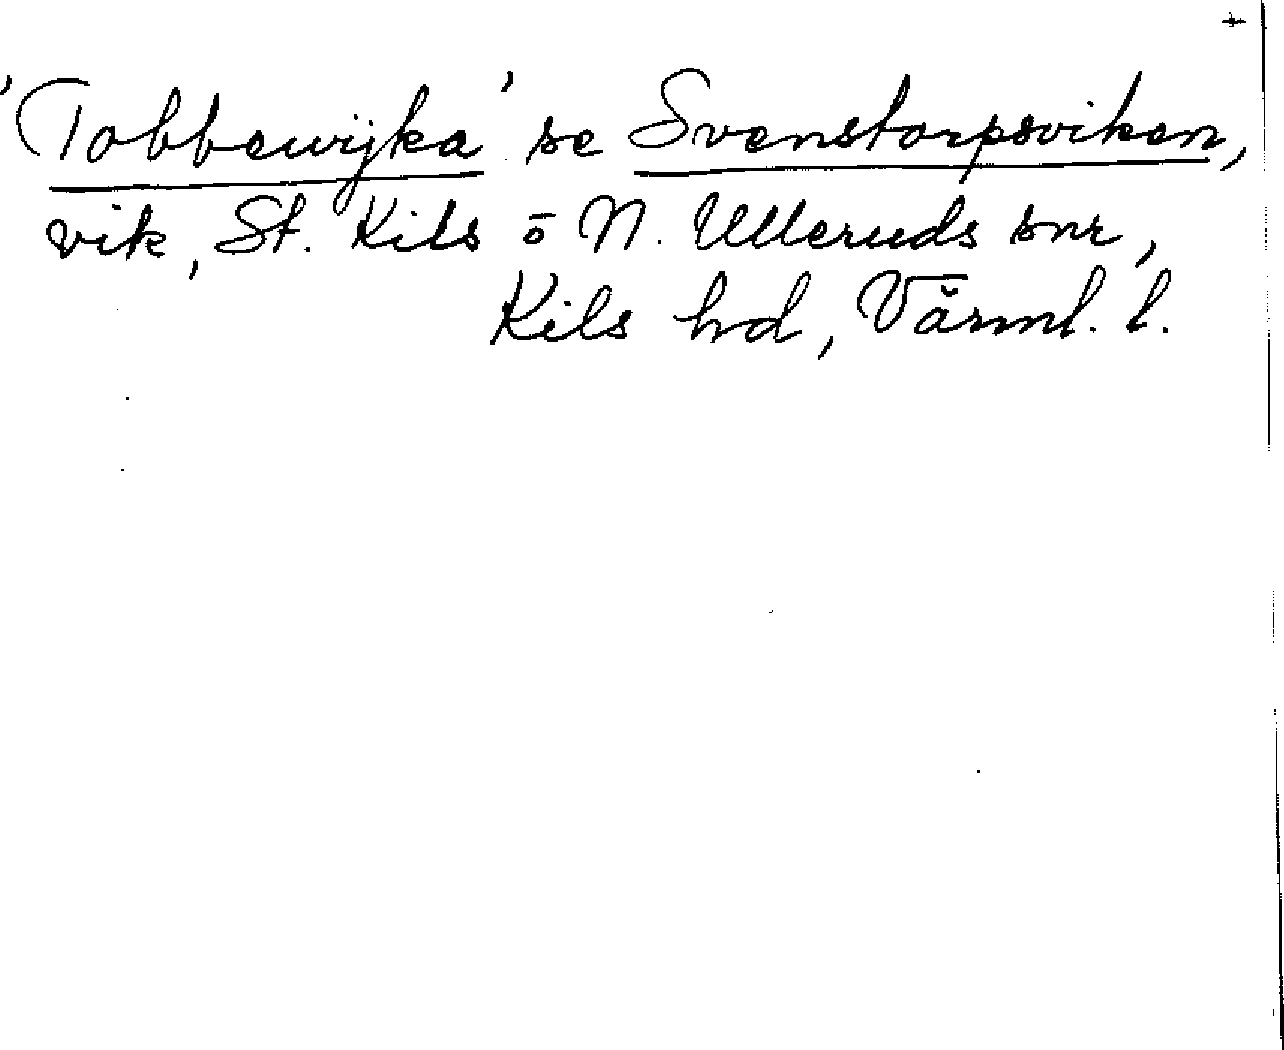 +
'Tobbewijka' se Svenstorpsviken,
vik, St. Kils o N. Ulleruds snr,
Kils hd, Värml. l.